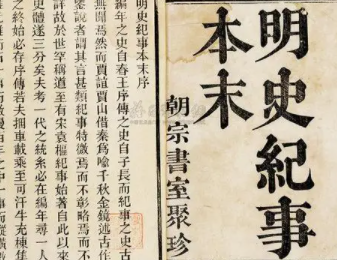 明史紀事
本末
朝宗書室聚珍
明史紀事本末序
編年之史自春王序傳之史自子長而紀事之史古
無聞焉然而賈誼賈山借秦為喻千秋金鏡述古作
鑒說者謂其言甚類紀事特微焉而不彰略焉而不
詳故於世罕稱道至有宋袁樞紀事始著自此以來
史體遂三分矣夫考一代之統系必在編年尋一人
之終始必存序傳若夫捆車載乘至可汗牛充棟集